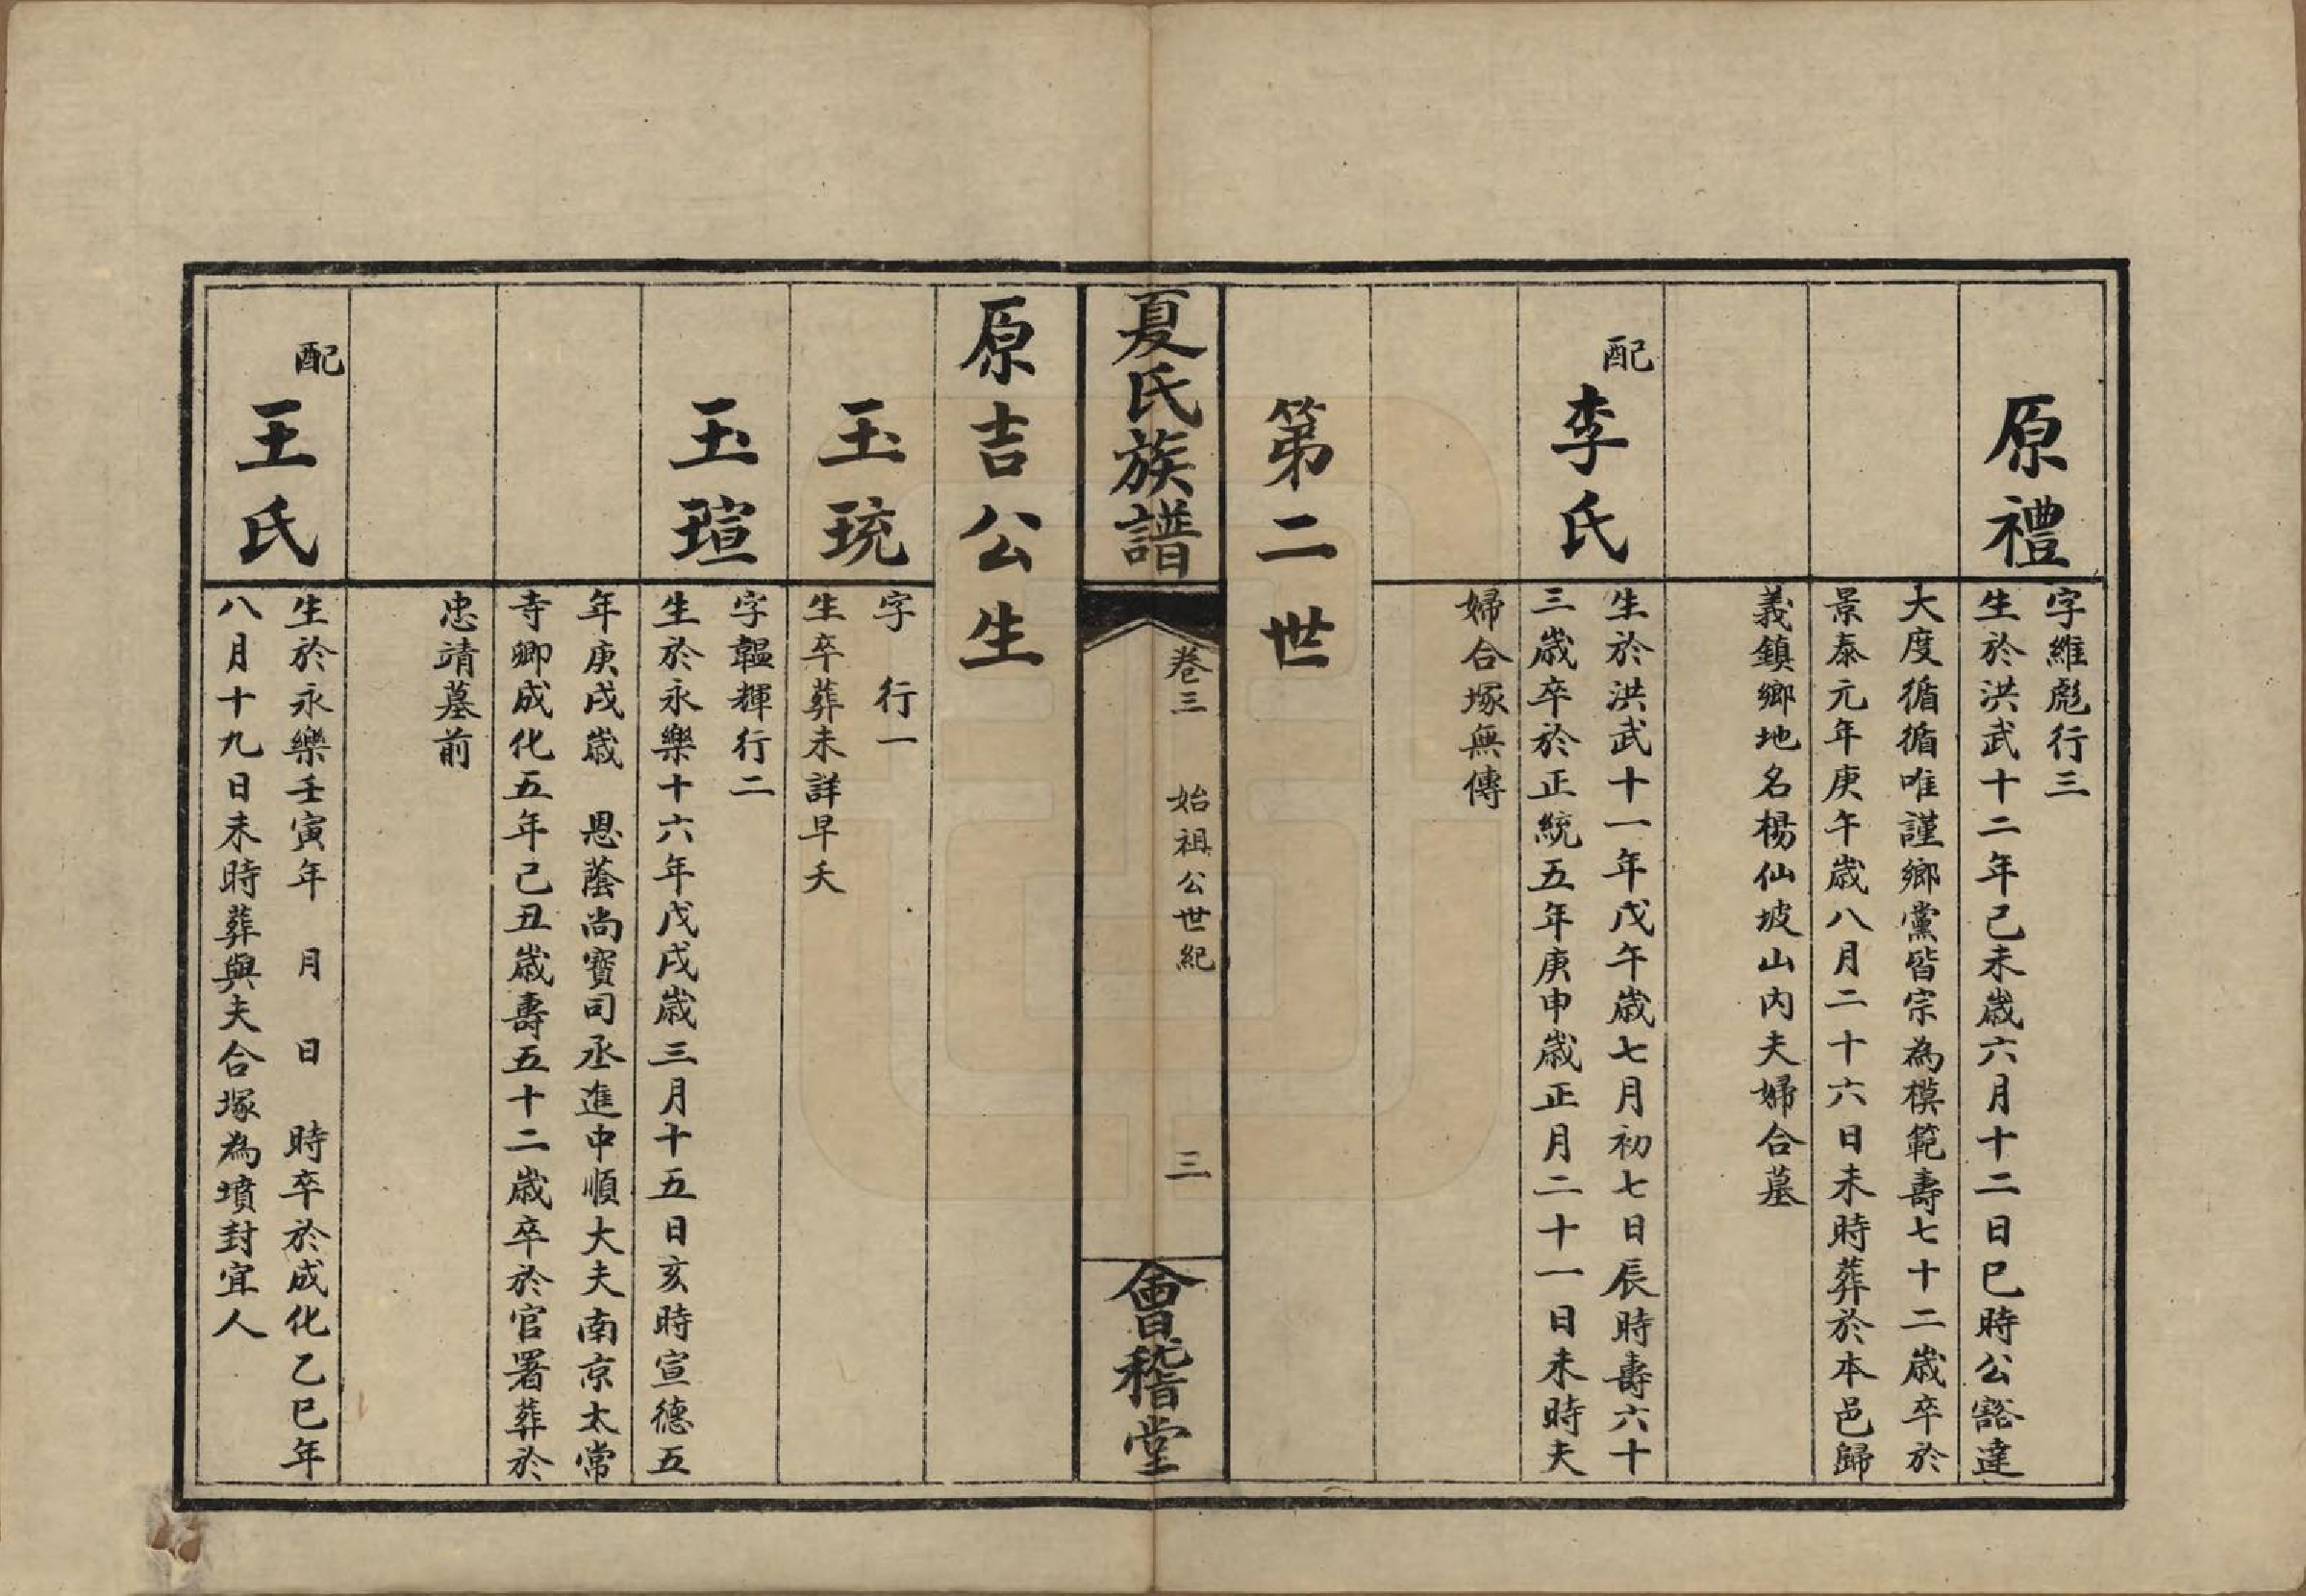 原禮
字維彪行三
生於洪武十二年己未歲六月十二日巳時公豁達
大度循循唯謹鄉黨皆宗為模範壽七十二歲卒於
景泰元年庚午歲八月二十六日未時葬於本邑歸
義鎮鄉地名楊仙坡山內夫婦合墓
配李氏
生於洪武十一年戊午歲七月初七日辰時壽六十
三歲卒於正統五年庚申歲正月二十一日未時夫
婦合塚無傳
第二世
夏氏族譜
卷三 始祖公世紀 三
會稽堂
原吉公生
玉琉
字 行一
生卒葬未詳早夭
玉瑄
字韞輝行二
生於永樂十六年戊戌歲三月十五日亥時宣德五
年庚戌歲 恩蔭尚寶司丞進中順大夫南京太常
寺卿成化五年己丑歲壽五十二歲卒於官署葬於
忠靖墓前
配王氏
生於永樂壬寅年 月 日 時卒於成化乙巳年
八月十九日未時葬與夫合塚為墳封宜人